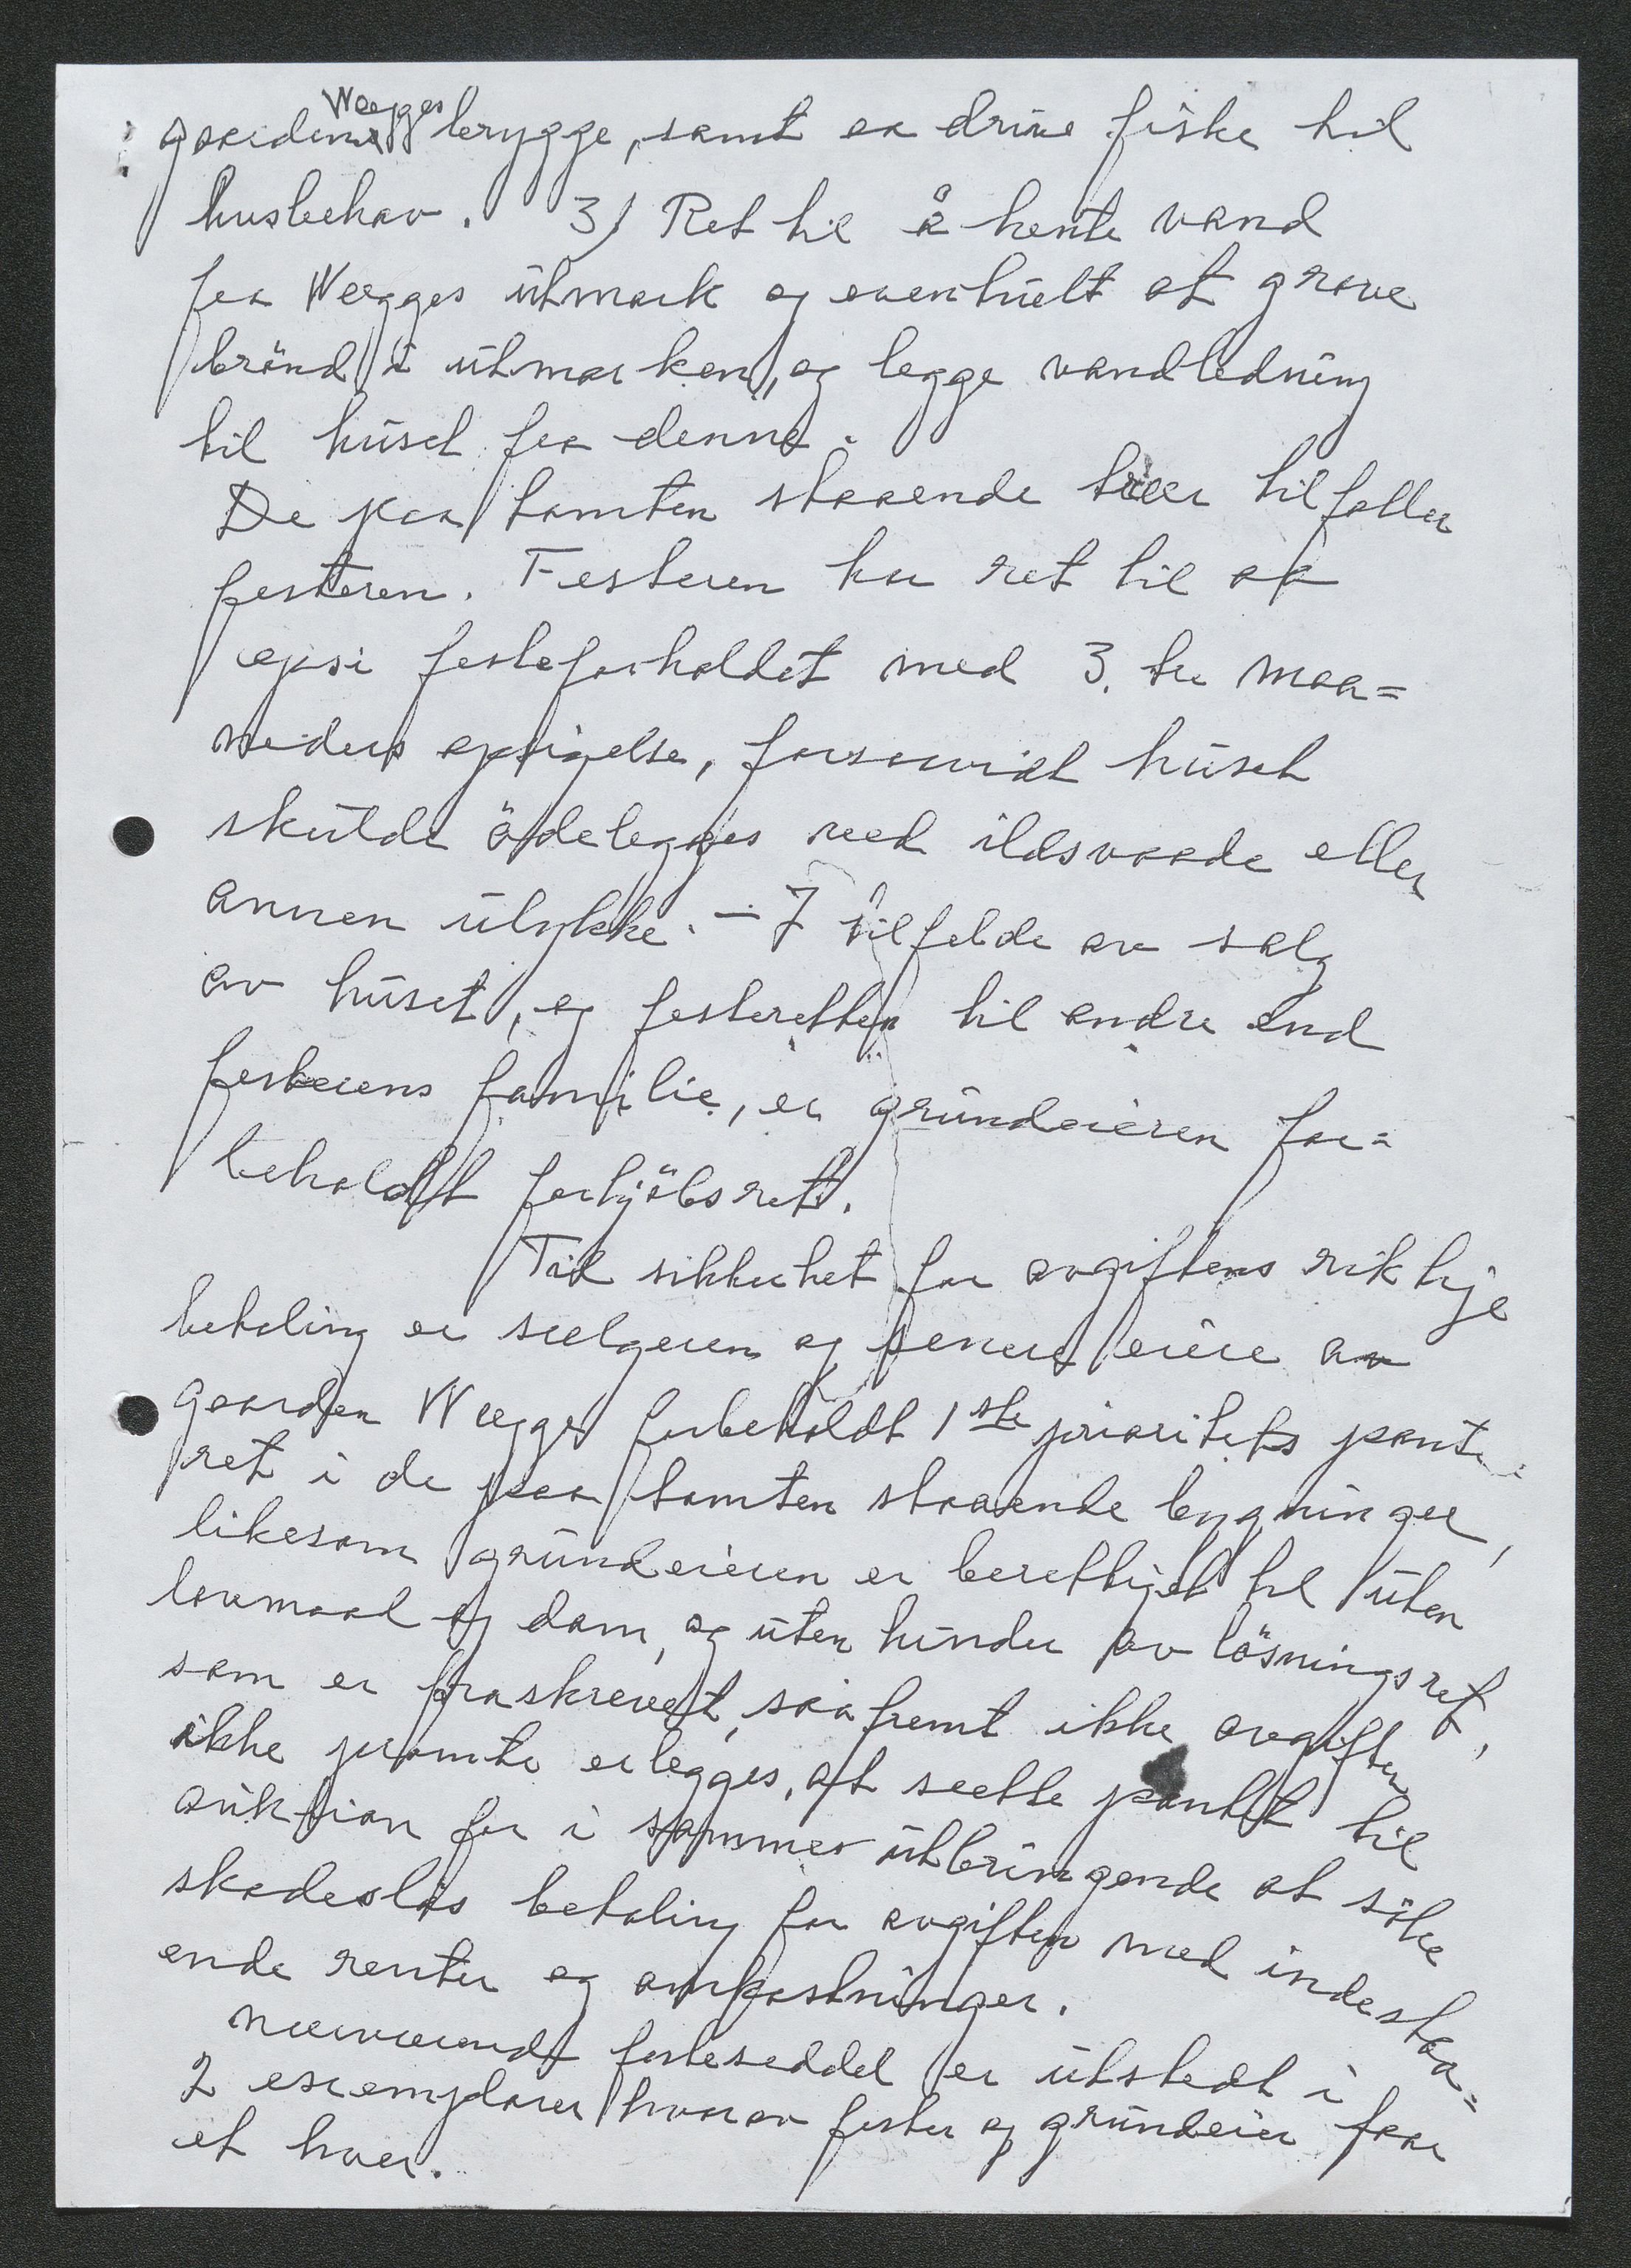 gaardens Wægges brygge, samt aa drive fiske til
husbehov. 3) Ret til å hente vand
fra Wægges utmark og eventuelt at grave
brönd i utmarken, og legge vandledning
til huset fra denne.
De paa tomten staaende træer tilfaller
festeren. Festeren har ret til aa
opsi festeforholdet med 3. tre maa=
neders opsigelse, forsaavidt huset
skulde ödelegges ved ildsvaade eller
annen ulykke. – I tilfelde av salg
av huset, og festeretten til andre end
festerens familie, er grundeieren for=
beholdt forkjöbsret.
Til sikkerhet for avgiftens riktige
betaling er sælgeren og senere eiere av
gaarden Wægge forbeholdt 1ste prioritets pante=
ret i de paa tomten staaende bygninger,
likesom grundeieren er berettiget til uten
lovmaal og dom, og uten hinder av lösningsret,
som er fraskrevet, saafremt ikke avgiften,
ikke promte erlegges, at sætte pantet til
auktion for i sammes utbringende at söke
skadeslös betaling for avgiften med indestaa=
ende renter og omkostninger.
Nærværende festeseddel er utstedt i
2 exemplarer hvorav fester og grundeier faar
et hver.